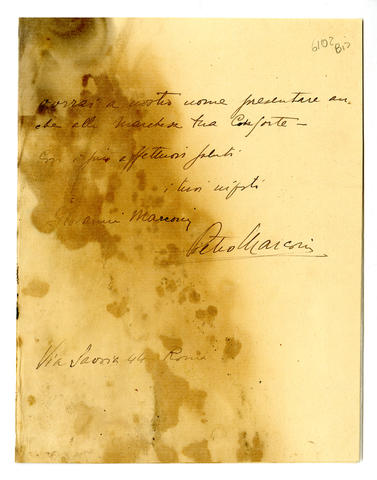 6102
Bis
vorrai a nostro nome presentare an-
che alla Marchesa tua Consorte –
Con i più affettuosi saluti
i tuoi nipoti
Giovanni Marconi
Pietro Marconi
Via Savoia 44 Roma